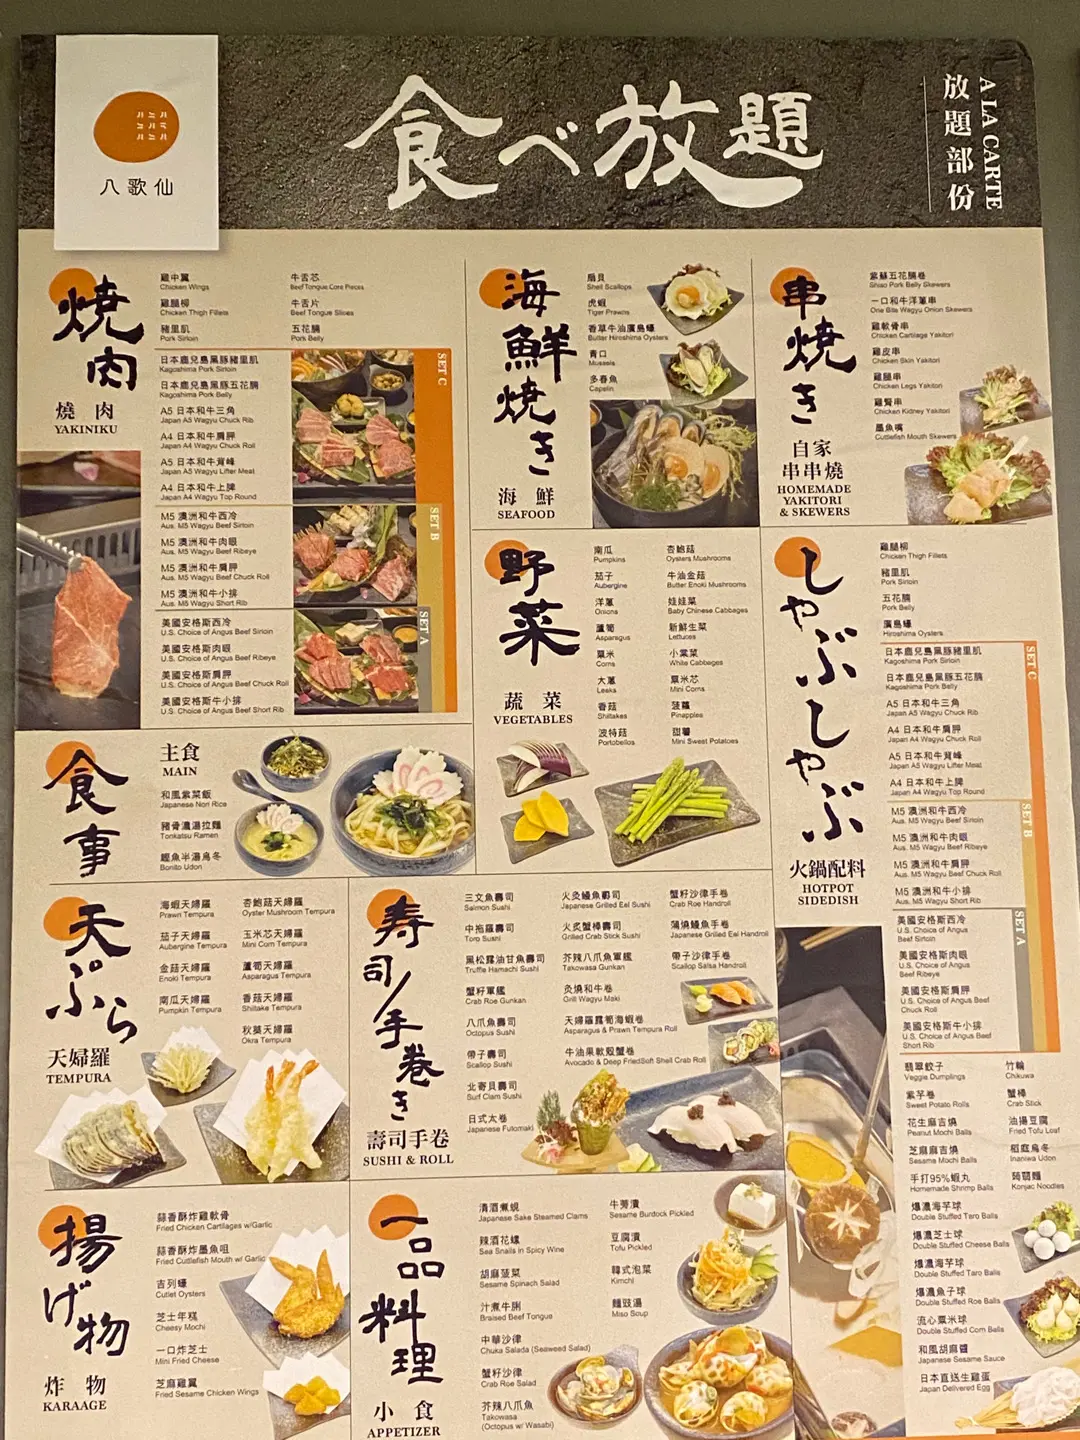 八歌仙
食べ放題
放題部份
A LA CARTE
焼肉
燒肉
YAKINIKU
雞中翼
Chicken Wings
雞腿柳
Chicken Thigh Fillets
豬里肌
Pork Sirloin
牛舌芯
Beef Tongue Core Pieces
牛舌片
Beef Tongue Slices
五花腩
Pork Belly
SET C
日本鹿兒島黑豚豬里肌
Kagoshima Pork Sirloin
日本鹿兒島黑豚五花腩
Kagoshima Pork Belly
A5 日本和牛三角
Japan A5 Wagyu Chuck Rib
A4 日本和牛肩胛
Japan A4 Wagyu Chuck Roll
A5 日本和牛背峰
Japan A5 Wagyu Lifter Meat
A4 日本和牛上脾
Japan A4 Wagyu Top Round
SET B
M5 澳洲和牛西冷
Aus. M5 Wagyu Beef Sirloin
M5 澳洲和牛肉眼
Aus. M5 Wagyu Beef Ribeye
M5 澳洲和牛肩胛
Aus. M5 Wagyu Beef Chuck Roll
M5 澳洲和牛小排
Aus. M5 Wagyu Short Rib
SET A
美國安格斯西冷
U.S. Choice of Angus Beef Sirloin
美國安格斯肉眼
U.S. Choice of Angus Beef Ribeye
美國安格斯肩胛
U.S. Choice of Angus Beef Chuck Roll
美國安格斯牛小排
U.S. Choice of Angus Beef Short Rib
海鮮焼き
海鮮
SEAFOOD
扇貝
Shell Scallops
虎蝦
Tiger Prawns
香草牛油廣島蠔
Butter Hiroshima Oysters
青口
Mussels
多春魚
Capelin
串焼き
自家
串串燒
HOMEMADE
YAKITORI
& SKEWERS
紫蘇五花腩卷
Shiso Pork Belly Skewers
一口和牛洋蔥串
One Bite Wagyu Onion Skewers
雞軟骨串
Chicken Cartilage Yakitori
雞皮串
Chicken Skin Yakitori
雞腿串
Chicken Legs Yakitori
雞腎串
Chicken Kidney Yakitori
墨魚嘴
Cuttlefish Mouth Skewers
野菜
蔬菜
VEGETABLES
南瓜
Pumpkins
茄子
Aubergine
洋蔥
Onions
蘆筍
Asparagus
粟米
Corns
大蔥
Leeks
香菇
Shiitakes
波特菇
Portobellos
杏鮑菇
Oysters Mushrooms
牛油金菇
Butter Enoki Mushrooms
娃娃菜
Baby Chinese Cabbages
新鮮生菜
Lettuces
小棠菜
White Cabbages
粟米芯
Mini Corns
菠蘿
Pinapples
甜薯
Mini Sweet Potatoes
しゃぶしゃぶ
火鍋配料
HOTPOT
SIDEDISH
雞腿柳
Chicken Thigh Fillets
豬里肌
Pork Sirloin
五花腩
Pork Belly
廣島蠔
Hiroshima Oysters
SET C
日本鹿兒島黑豚豬里肌
Kagoshima Pork Sirloin
日本鹿兒島黑豚五花腩
Kagoshima Pork Belly
A5 日本和牛三角
Japan A5 Wagyu Chuck Rib
A4 日本和牛肩胛
Japan A4 Wagyu Chuck Roll
A5 日本和牛背峰
Japan A5 Wagyu Lifter Meat
A4 日本和牛上脾
Japan A4 Wagyu Top Round
SET B
M5 澳洲和牛西冷
Aus. M5 Wagyu Beef Sirloin
M5 澳洲和牛肉眼
Aus. M5 Wagyu Beef Ribeye
M5 澳洲和牛肩胛
Aus. M5 Wagyu Beef Chuck Roll
M5 澳洲和牛小排
Aus. M5 Wagyu Short Rib
SET A
美國安格斯西冷
U.S. Choice of Angus
Beef Sirloin
美國安格斯肉眼
U.S. Choice of Angus
Beef Ribeye
美國安格斯肩胛
U.S. Choice of Angus Beef
Chuck Roll
美國安格斯牛小排
U.S. Choice of Angus Beef
Short Rib
翡翠餃子
Veggie Dumplings
紫芋卷
Sweet Potato Rolls
花生麻吉燒
Peanut Mochi Balls
芝麻麻吉燒
Sesame Mochi Balls
手打95%蝦丸
Homemade Shrimp Balls
爆濃海芋球
Double Stuffed Taro Balls
爆濃芝士球
Double Stuffed Cheese Balls
爆濃海芋球
Double Stuffed Taro Balls
爆濃魚子球
Double Stuffed Roe Balls
流心粟米球
Double Stuffed Corn Balls
和風胡麻醬
Japanese Sesame Sauce
日本直送生雞蛋
Japan Delivered Egg
竹輪
Chikuwa
蟹棒
Crab Stick
油揚豆腐
Fried Tofu Loaf
稻庭烏冬
Inaniwa Udon
蒟蒻麵
Konjac Noodles
食事
主食
MAIN
和風紫菜飯
Japanese Nori Rice
豬骨濃湯拉麵
Tonkatsu Ramen
鰹魚半湯烏冬
Bonito Udon
天ぷら
天婦羅
TEMPURA
海蝦天婦羅
Prawn Tempura
茄子天婦羅
Aubergine Tempura
金菇天婦羅
Enoki Tempura
南瓜天婦羅
Pumpkin Tempura
杏鮑菇天婦羅
Oyster Mushroom Tempura
玉米芯天婦羅
Mini Corn Tempura
蘆筍天婦羅
Asparagus Tempura
香菇天婦羅
Shiitake Tempura
秋葵天婦羅
Okra Tempura
寿司/手巻き
壽司手卷
SUSHI & ROLL
三文魚壽司
Salmon Sushi
中拖羅壽司
Toro Sushi
黑松露油甘魚壽司
Truffle Hamachi Sushi
蟹籽軍艦
Crab Roe Gunkan
八爪魚壽司
Octopus Sushi
帶子壽司
Scallop Sushi
北寄貝壽司
Surf Clam Sushi
日式太卷
Japanese Futomaki
火灸鰻魚壽司
Japanese Grilled Eel Sushi
火炙蟹棒壽司
Grilled Crab Stick Sushi
芥辣八爪魚軍艦
Takowasa Gunkan
灸燒和牛卷
Grill Wagyu Maki
天婦羅露筍海蝦卷
Asparagus & Prawn Tempura Roll
牛油果軟殼蟹卷
Avocado & Deep FriedSoft Shell Crab Roll
蟹籽沙律手卷
Crab Roe Handroll
蒲燒鰻魚手卷
Japanese Grilled Eel Handroll
帶子沙律手卷
Scallop Salsa Handroll
揚げ物
炸物
KARAAGE
蒜香酥炸雞軟骨
Fried Chicken Cartilages w/Garlic
蒜香酥炸墨魚咀
Fried Cuttlefish Mouth w/ Garlic
吉列蠔
Cutlet Oysters
芝士年糕
Cheesy Mochi
一口炸芝士
Mini Fried Cheese
芝麻雞翼
Fried Sesame Chicken Wings
一品料理
小食
APPETIZER
清酒煮蜆
Japanese Sake Steamed Clams
辣酒花螺
Sea Snails in Spicy Wine
胡麻菠菜
Sesame Spinach Salad
汁煮牛脷
Braised Beef Tongue
中華沙律
Chuka Salada (Seaweed Salad)
蟹籽沙律
Crab Roe Salad
芥辣八爪魚
Takowasa
(Octopus w/ Wasabi)
牛蒡漬
Sesame Burdock Pickled
豆腐漬
Tofu Pickled
韓式泡菜
Kimchi
麵豉湯
Miso Soup